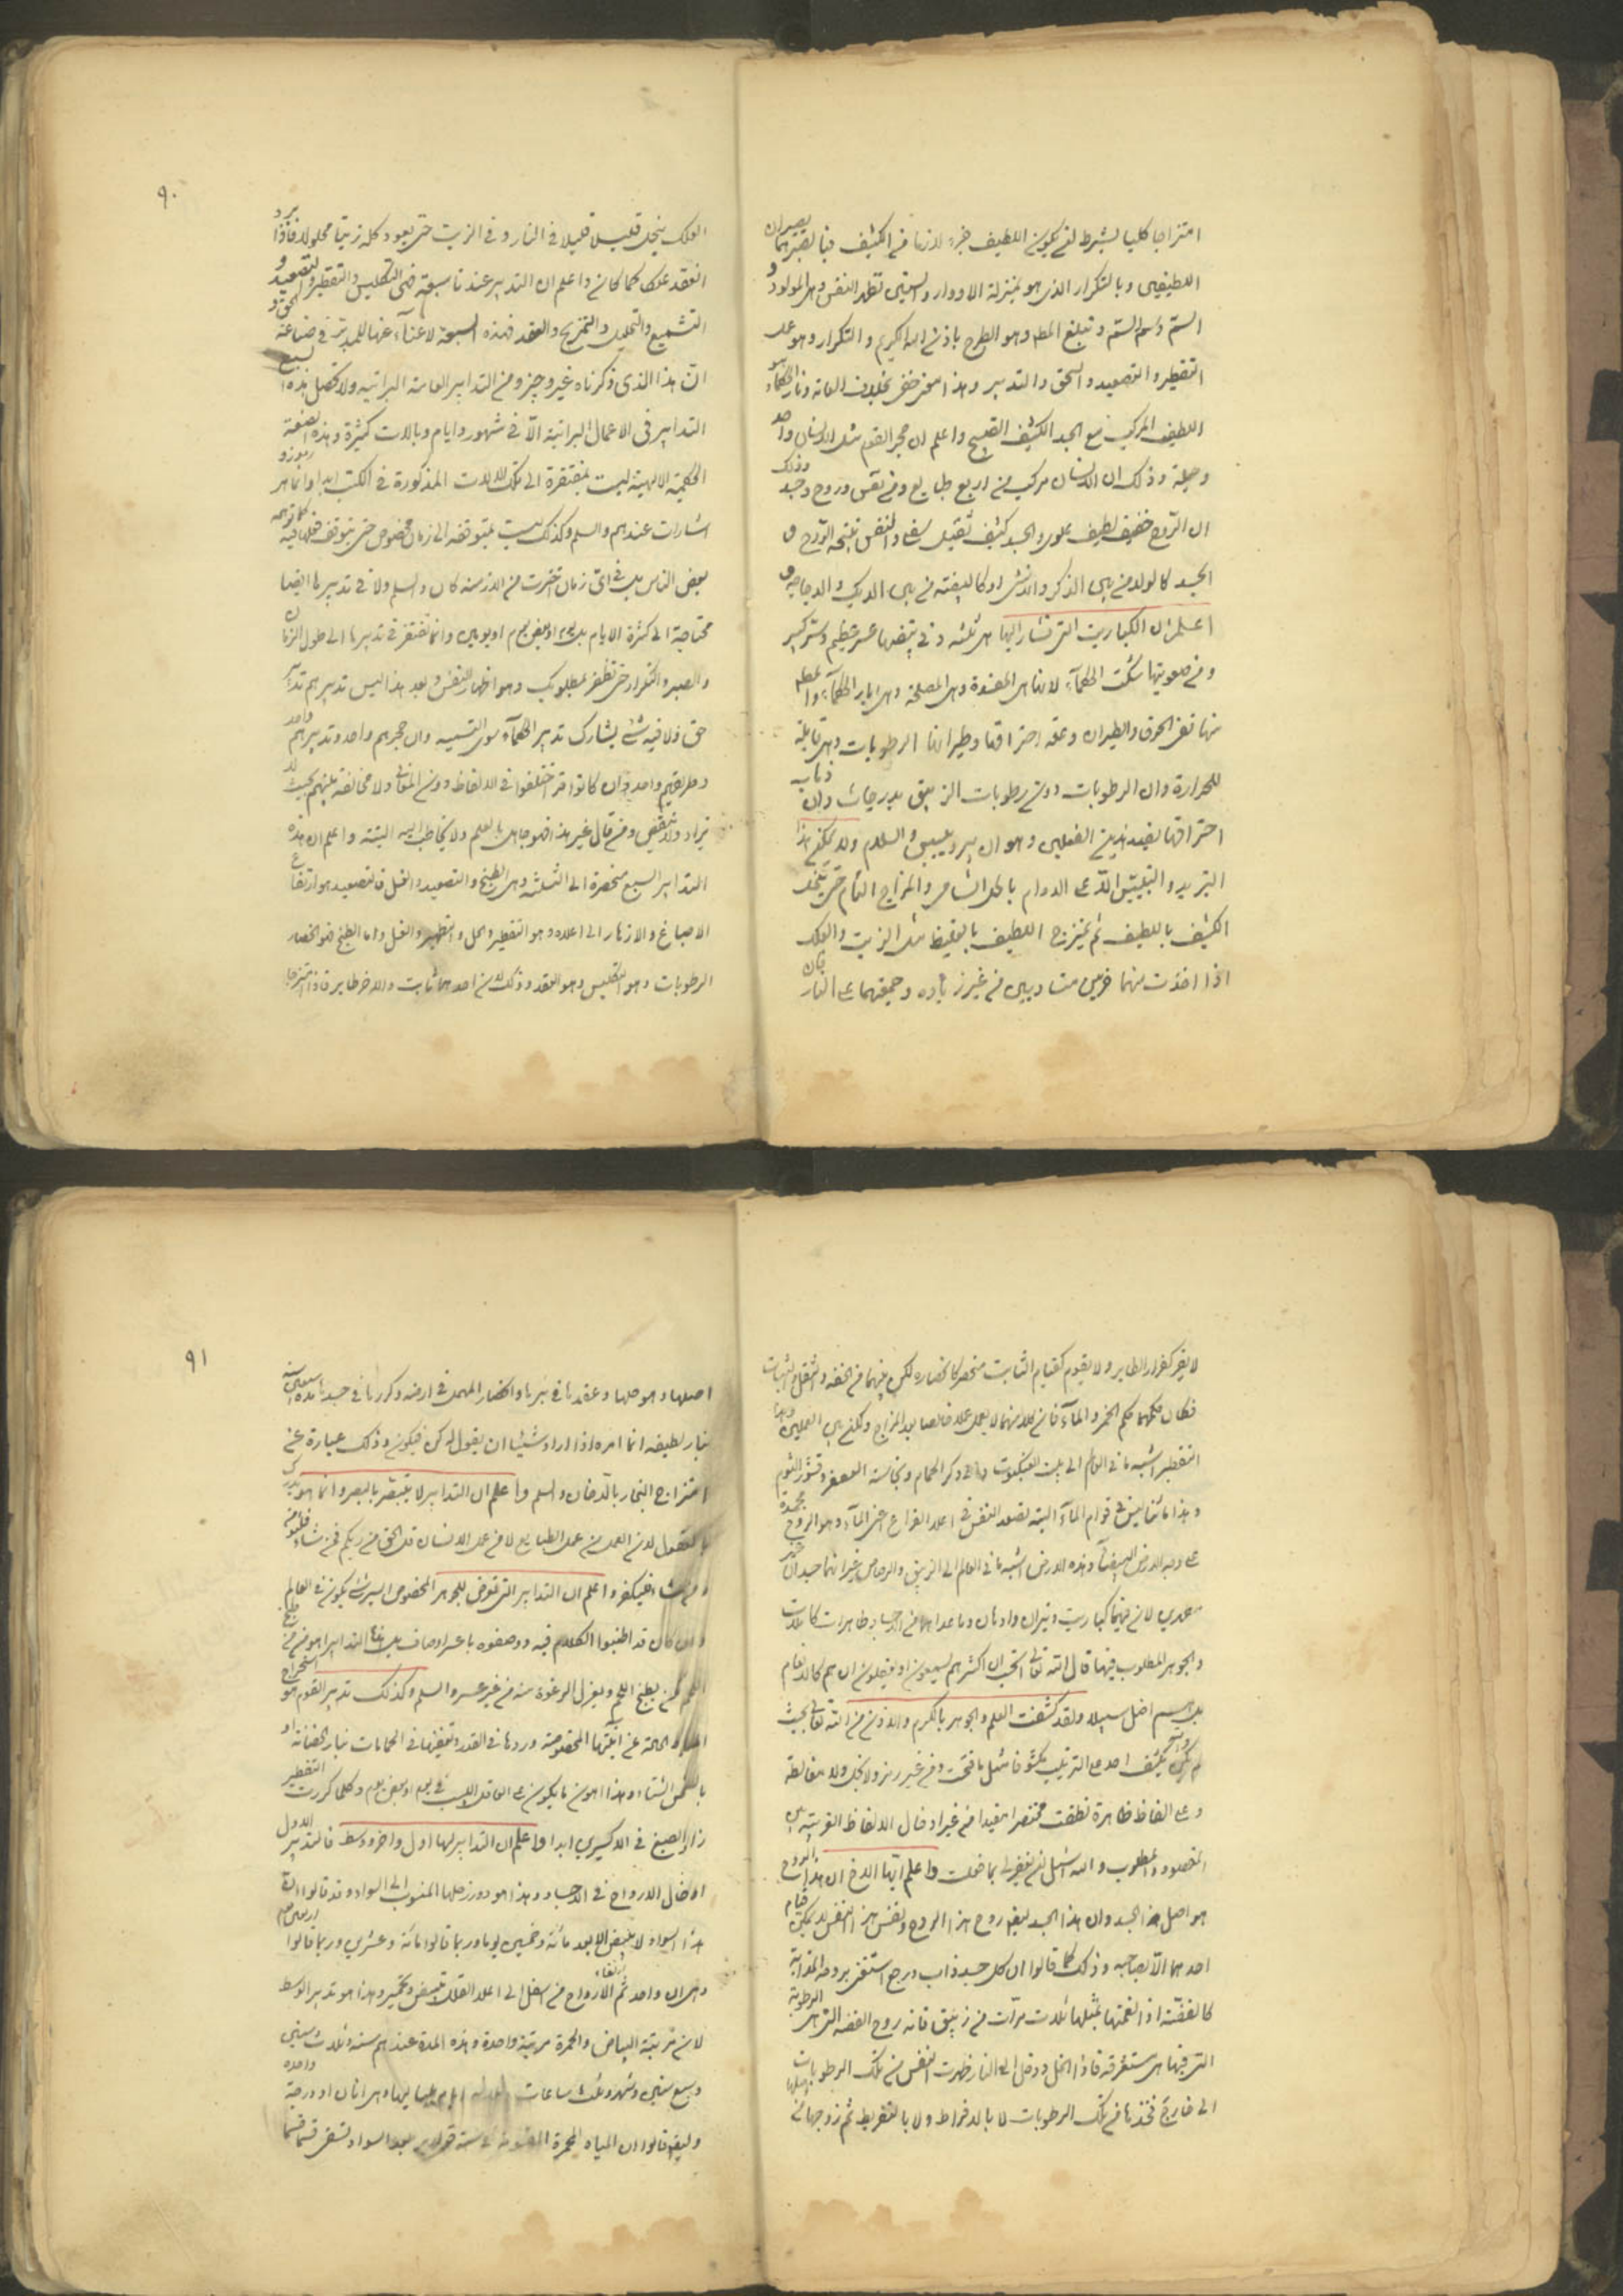 امتزاجا كليا بشرط ان يكون اللطيف جزء لازما في الكثيف فبالصبر يصيران
اللطيفين وبالتكرار الذي هو بمنزلة الادوار والسقي تظهر النفس وهي المولود و
السم وسم السم وتبلغ المطه وهو الطرح باذن الله الكريم والتكرار وهو على
التقطير والتصعيد والسحق والتدبير وهذا خفي بخلاف العامة ونار الحكماء
اللطيف المركب مع الجسد الكثيف القبيح واعلم ان حجر القوم مثل الانسان واحد
وجملة وذلك ان الانسان مركب من اربع طبايع ومن نفس وروح وجسد وذلك
ان الروح خفيف لطيف علوي والجسد كثيف ثقيل سفلي والنفس نتيجة الروح و
الجسد كالولد من بين الذكر والانثى او كالبيضة من بين الديك والدجاجة و
اعلم ان الكباريت التي تشار اليها هي ثلثه وفي تبيضها عسر عظيم وسر كبير
ومن صعوبتها سكت الحكماء لانها هي المفسدة وهي المصلحة وهي ابار الحكماء والمطه
منها نفي الحرق والطيران وعلة احتراقها وطيرانها الرطوبات وهي قابلة
للحرارة وان الرطوبات دون رطوبات الزيبق بدرجات وان ذهاب
احتراقها بضد هذين الفعلين وهو ان يبرد ييبس والسلام ولا يمكن هذا
التبريد والتيبيس الا على الدوام بالحل الشامل والمزاج التام حتى ينحل
الكثيف باللطيف ثم يمتزج اللطيف بالغليظ مثل الزيت والعلك
اذا اخذت منهما جزئين متساويين من غير زيادة وجمعتهما على النار فان
٩٠
العلك ينحل قليلا قليلا في النار وفي الزيت حتى يعود كله زيتا محلولا فاذا برد
انعقد علكا كما كان واعلم ان التدبير عندنا سبعة فهي التكليس والتقطير والتصعيد و
التشميع والتحليل والتمزيج والعقد فهذه السبعة لا غناء عنها للمدبر في صناعة الحق و
ان هذا الذي ذكرناه غير وجيز ومن التدابير العامة البرانية ولا تحصل هذه السبع
التدابير في الاعمال البرانية الا في شهور وايام وبالات كثيرة وهذه الصنعة
الحكمية الالهية ليست بمفتقرة الى تلك الالات المذكورة في الكتب ابدا وانما هي رموز و
اشارات عندهم والسلم وكذلك ليست بمتوقفه الى زمان مخصوص حتى يتوقف فعلها فيه كما توهمه
بعض الناس بل في اي زمان اخترت من الازمنة كان والسلم ولا في تدبيرها ايضا
محتاجة الى كثرة الايام بل يوم او بعض يوم او يومين وانما تفتقر في تدبيرها الى طول الزمان
والصبر والتكرار حتى تظفر بمطلوبك وهو اظهار النفس وبعد هذا ليس تدبيرهم تدبير
حق ولا فيه شئ يشارك تدبير الحكماء سوى التسميه وان حجرهم واحد وتدبيرهم واحد
وطريقهم واحد وان كانوا قد اختلفوا في الالفاظ دون المعاني ولا مخالفة بينهم بحيث لا
يزاد ولا ينقص ومن قال غير هذا فهو جاهل بالعلم ولا يخاطب اليه البتة واعلم ان هذه
التدابير السبع منحصرة الى الثلثة وهي الطبخ والتصعيد والغسل فالتصعيد هو ارتفاع
الاصباغ والازهار الى اعلاه وهو التقطير والحل والتطهير والغسل واما الطبخ فهو انحصار
الرطوبات وهو التكليس وهو العقد وذلك لان احدهما ثابت والاخر طاير فاذا امتزجا
لا يفر كفرار الطاير ولا يقوم كقيام الثابت منحصرا كانحصاره لكن بينهما في الخفة والثقل والثبات
فكان حكمهما حكم الخمر والماء فان كلا منهما لا يعمل عملا خالصا بعد المزاج ولكن بين العملين وهذا
التقطير اشبه ما في العالم الى بيت العنكبوت والى وكر الحمام ونخاسة العصفر وقشور الثوم
وهذا مما ليس في قوام الماء البتة لصعد النفس في اعلا القراع حتى الماء وهو الروح
على وجه الارض البيضا وهذه الارض اشبه ما في العالم الى الزيبق والرصاص غير انهما جسدان
معدنى لان فيهما كباريت ونيران وادهان وما عداهما من الاجساد طاهرات كاملات
والجوهر المطلوب فيهما قال الله تعالى ام تحسب ان اكثرهم يسمعون او يعقلون ان هم كالانعام
بل هم اضل سبيلا ولقد كشفت العلم والجوهر بالكرم والاذن من الله تعالى بحيث
لم يكشف احد على الترتيب كشفا مثل ما فتحت ومن غير رمز ولا بخل ولا مغالطة
وعلى الفاظ ظاهرة نطقت مختصرا مفيدا من غير ادخال الالفاظ الغريبة بين
المقصود والمطلوب والله اسئل ان يغفر لي بما فعلت واعلم ايها الاخ ان هذا الروح
هو اصل هذا الجسد وان هذا الجسد ليغير روح هذا الروح ونفس من النفس لا يمكن قيام
احدهما الا بصاحبه وذلك كما قالوا ان كل جسد ذاب ورجع استغنى بروحه الغرابية
كالفضة اذا انعمتها بمثلها ثلاث مرات من زيبق فانه روح الفضه التي هي الرطوبة
التي فيها هي مستغرقه فاذا انحل ودخل الى النار ظهرت النفس من تلك الرطوبات
الى خارج فخذها من تلك الرطوبات لا بالافراط ولا بالتفريط ثم زوجها من
٩١
اصلها وهو حلها وعقدها في بئرها وانحصارها المهمل في ارضه وكررها في جسدها مدة سبعين سنة
بنار لطيفه انما امره اذا اراد شيئا ان يقول له كن فيكون وذلك عبارة عن
امتزاج البخار بالدخان والسلم واعلم ان التدابير لا يتبصر بالبصر وانما هو يدرك
بالعقول لان العمل من عمل الطبايع لا من عمل الانسان قل الحق من ربكم فمن شاء فليؤمن
ومن شاء فليكفر واعلم ان التدابير التي تعرض للجوهر المخصوص ايسر شئ يكون في العالم
وان كان قد اطنبوا الكلام فيه ووصفوه باعسر اوصاف بل هذا التدابير اهون من طبخ
اللحم لمن يطبخ اللحم ويعزل الرغوة منه من غير عسر والسلم وكذلك تدبير القوم هو استخراج
المياه الحالة عن ابنيتها المخصوصة وردها في القدر وتعفينها في الحمامات بنار الحضانة او
بالشمس الشتاء وهذا اهون ما يكون على العاقل اللبيب في يوم او بعض يوم وكلما كررت التقطير
زاد الصبغ في الاكسيرين ابدا واعلم ان التدابير لها اول واخر ووسط فالتدبير الاول
ادخال الارواح في الاجساد وهذا هو دور زحلها المنسوب الى السواد وقد قالوا ان
هذا السواد لا يبيض الا بعد مائة وخمسين يوما وربما قالوا مائة وعشرين وربما قالوا اربعين
وهي ان واحد ثم ارتفاع الارواح من اسفل الى اعلا القلل يبيض وتحمير وهذا هو تدبير الوسط
لان مرتبة البياض والحمرة مرتبة واحدة وهذه المدة عندهم ستة وثلاث سنين
وسبع سنين وشهر وثلث ساعات بلياليها وهي اثنان او درجة واحده
وليغير قالوا ان المياه المحمرة بعد السواد تسقى قسما قسما